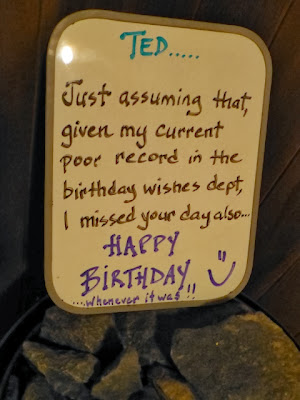 TED.....
Just assuming that,
given my current
poor record in the
birthday wishes dept,
I missed your day also...
HAPPY
BIRTHDAY
...whenever it was!!